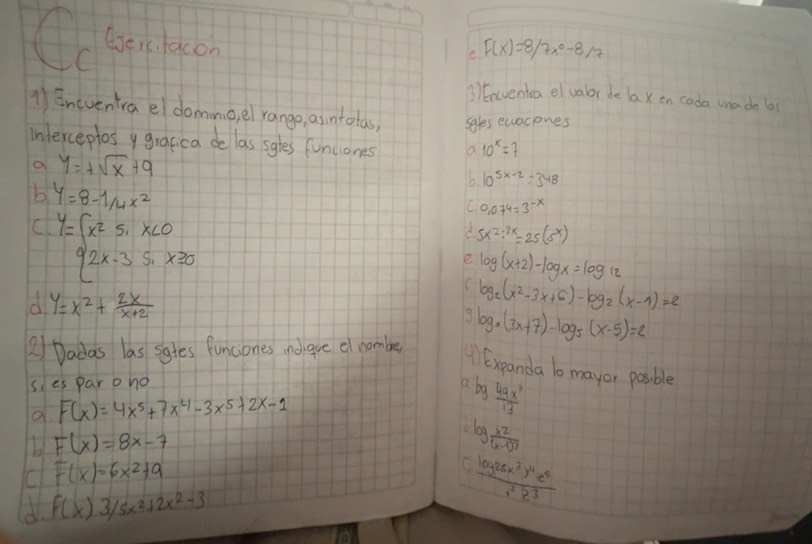 Cc Ejercitación
1) Encuentra el dominio, el rango, asintotas,
interceptos y grafica de las sgtes funciones
a y=+√x+9
b y=8-1/4x²
c. y={x² si x<0
{2x-3 si x≥0
d y=x²+ 2x/x+2
2) Dadas las sgtes funciones indique el nombre,
si es par o no
a F(x)=4x⁵+7x⁴-3x⁵+2x-1
b F(x)=8x-7
c F(x)=6x²+9
d F(x) 3/5x³+2x²-3
e. F(x)=8/7x⁰-8/7
3) Encuentra el valor de la x en cada una de las
sgtes ecuaciones
a 10ˣ=7
b. 10⁵ˣ⁻²=348
c 0,074=3⁻ˣ
d. =25(5ˣ)
e log(x+2)-logx=log 12
f log₂(x²-3x+6)-log₂(x-1)=2
g. (3x+7)-log₅(x-5)=2
4) Expanda lo mayor posible
a. log
b. log
c